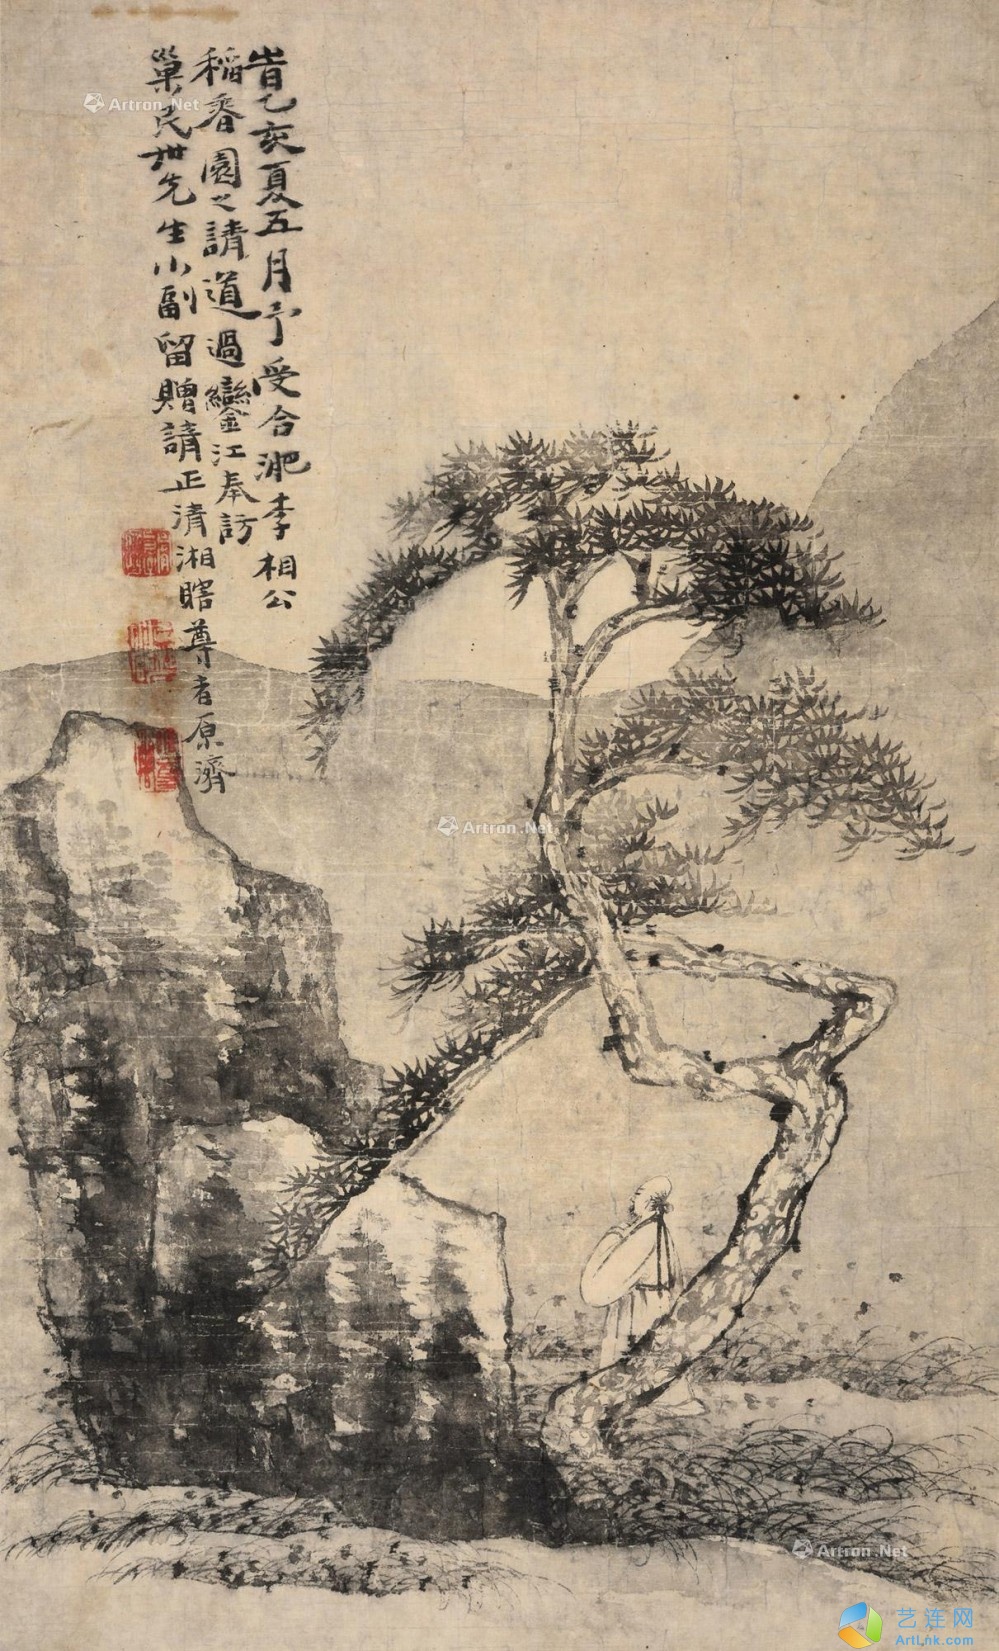 旹乙亥夏五月予受合淝李相公
稻香園之請道過鑾江奉訪
巢民世先生小副留贈請正清湘瞎尊者原濟
Artron.Net
Artron.Net
Artron.Net
艺连网
ArtLnk.com